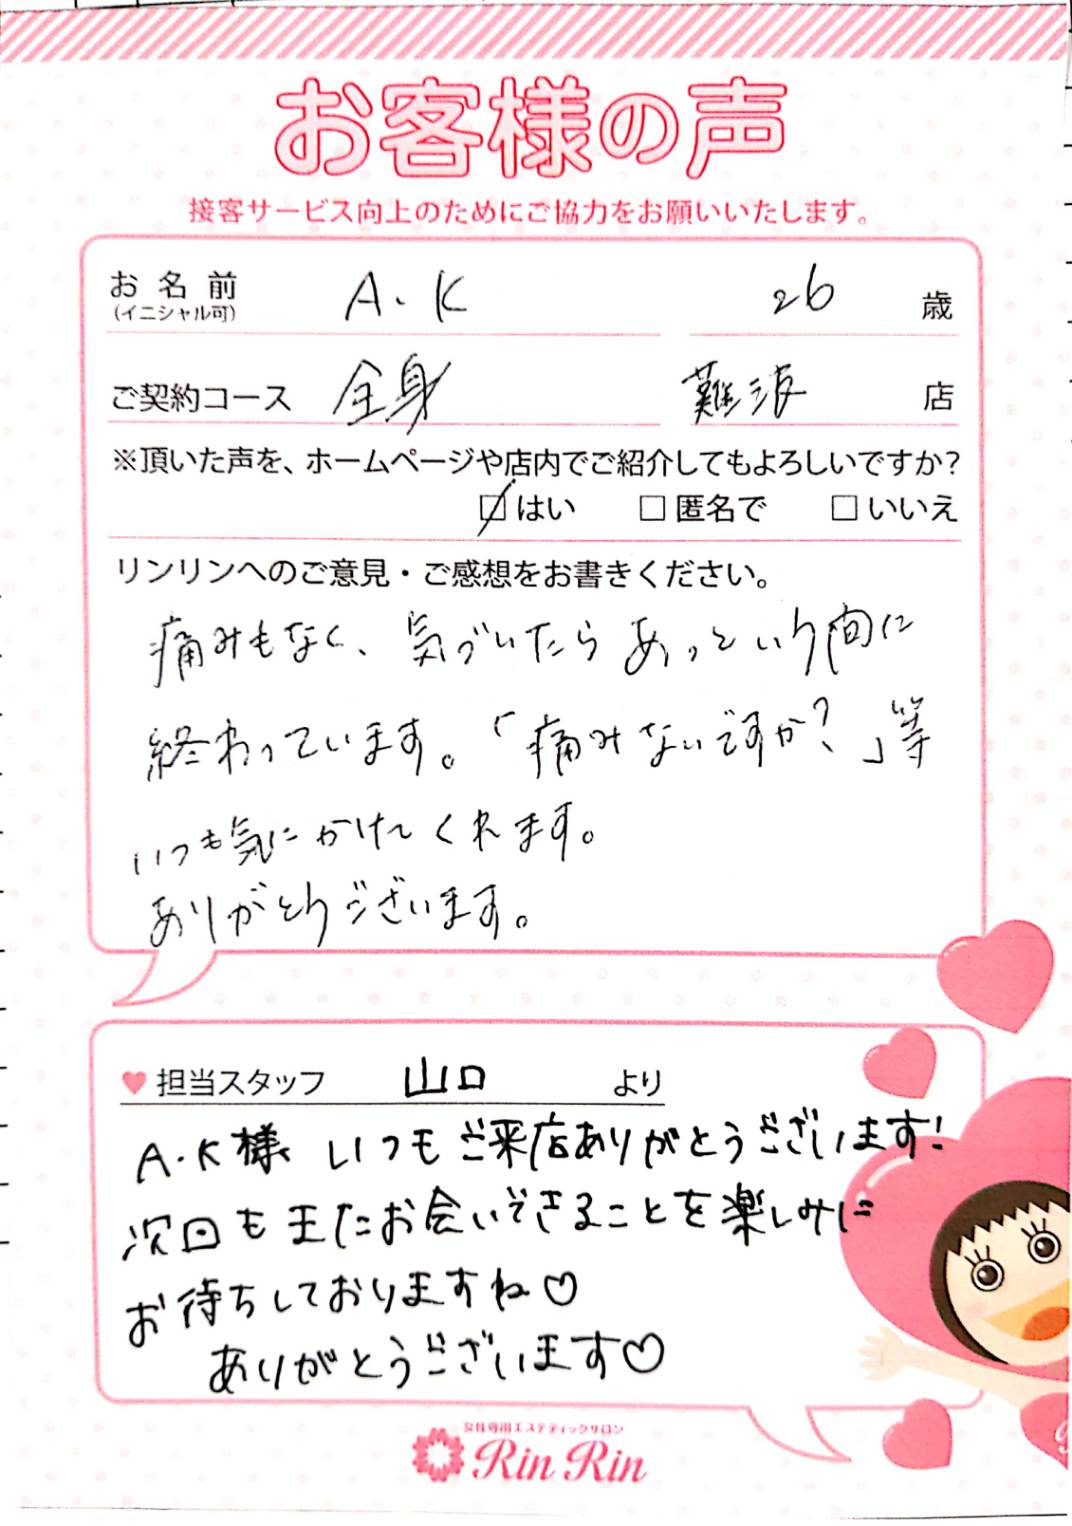 お客様の声
接客サービス向上のためにご協力をお願いいたします。
お名前 A.K 26 歳
(イニシャル可)
ご契約コース 全身 難波 店
※頂いた声を、ホームページや店内でご紹介してもよろしいですか？
☑はい □匿名で □いいえ
リンリンへのご意見・ご感想をお書きください。
痛みもなく、気づいたらあっという間に
終わっています。「痛みないですか？」等
いつも気にかけてくれます。
ありがとうございます。
♥担当スタッフ 山口 より
A.K様 いつもご来店ありがとうございます！
次回もまたお会いできることを楽しみに
お待ちしておりますね♡
ありがとうございます♡
女性専用エステティックサロン
Rin Rin